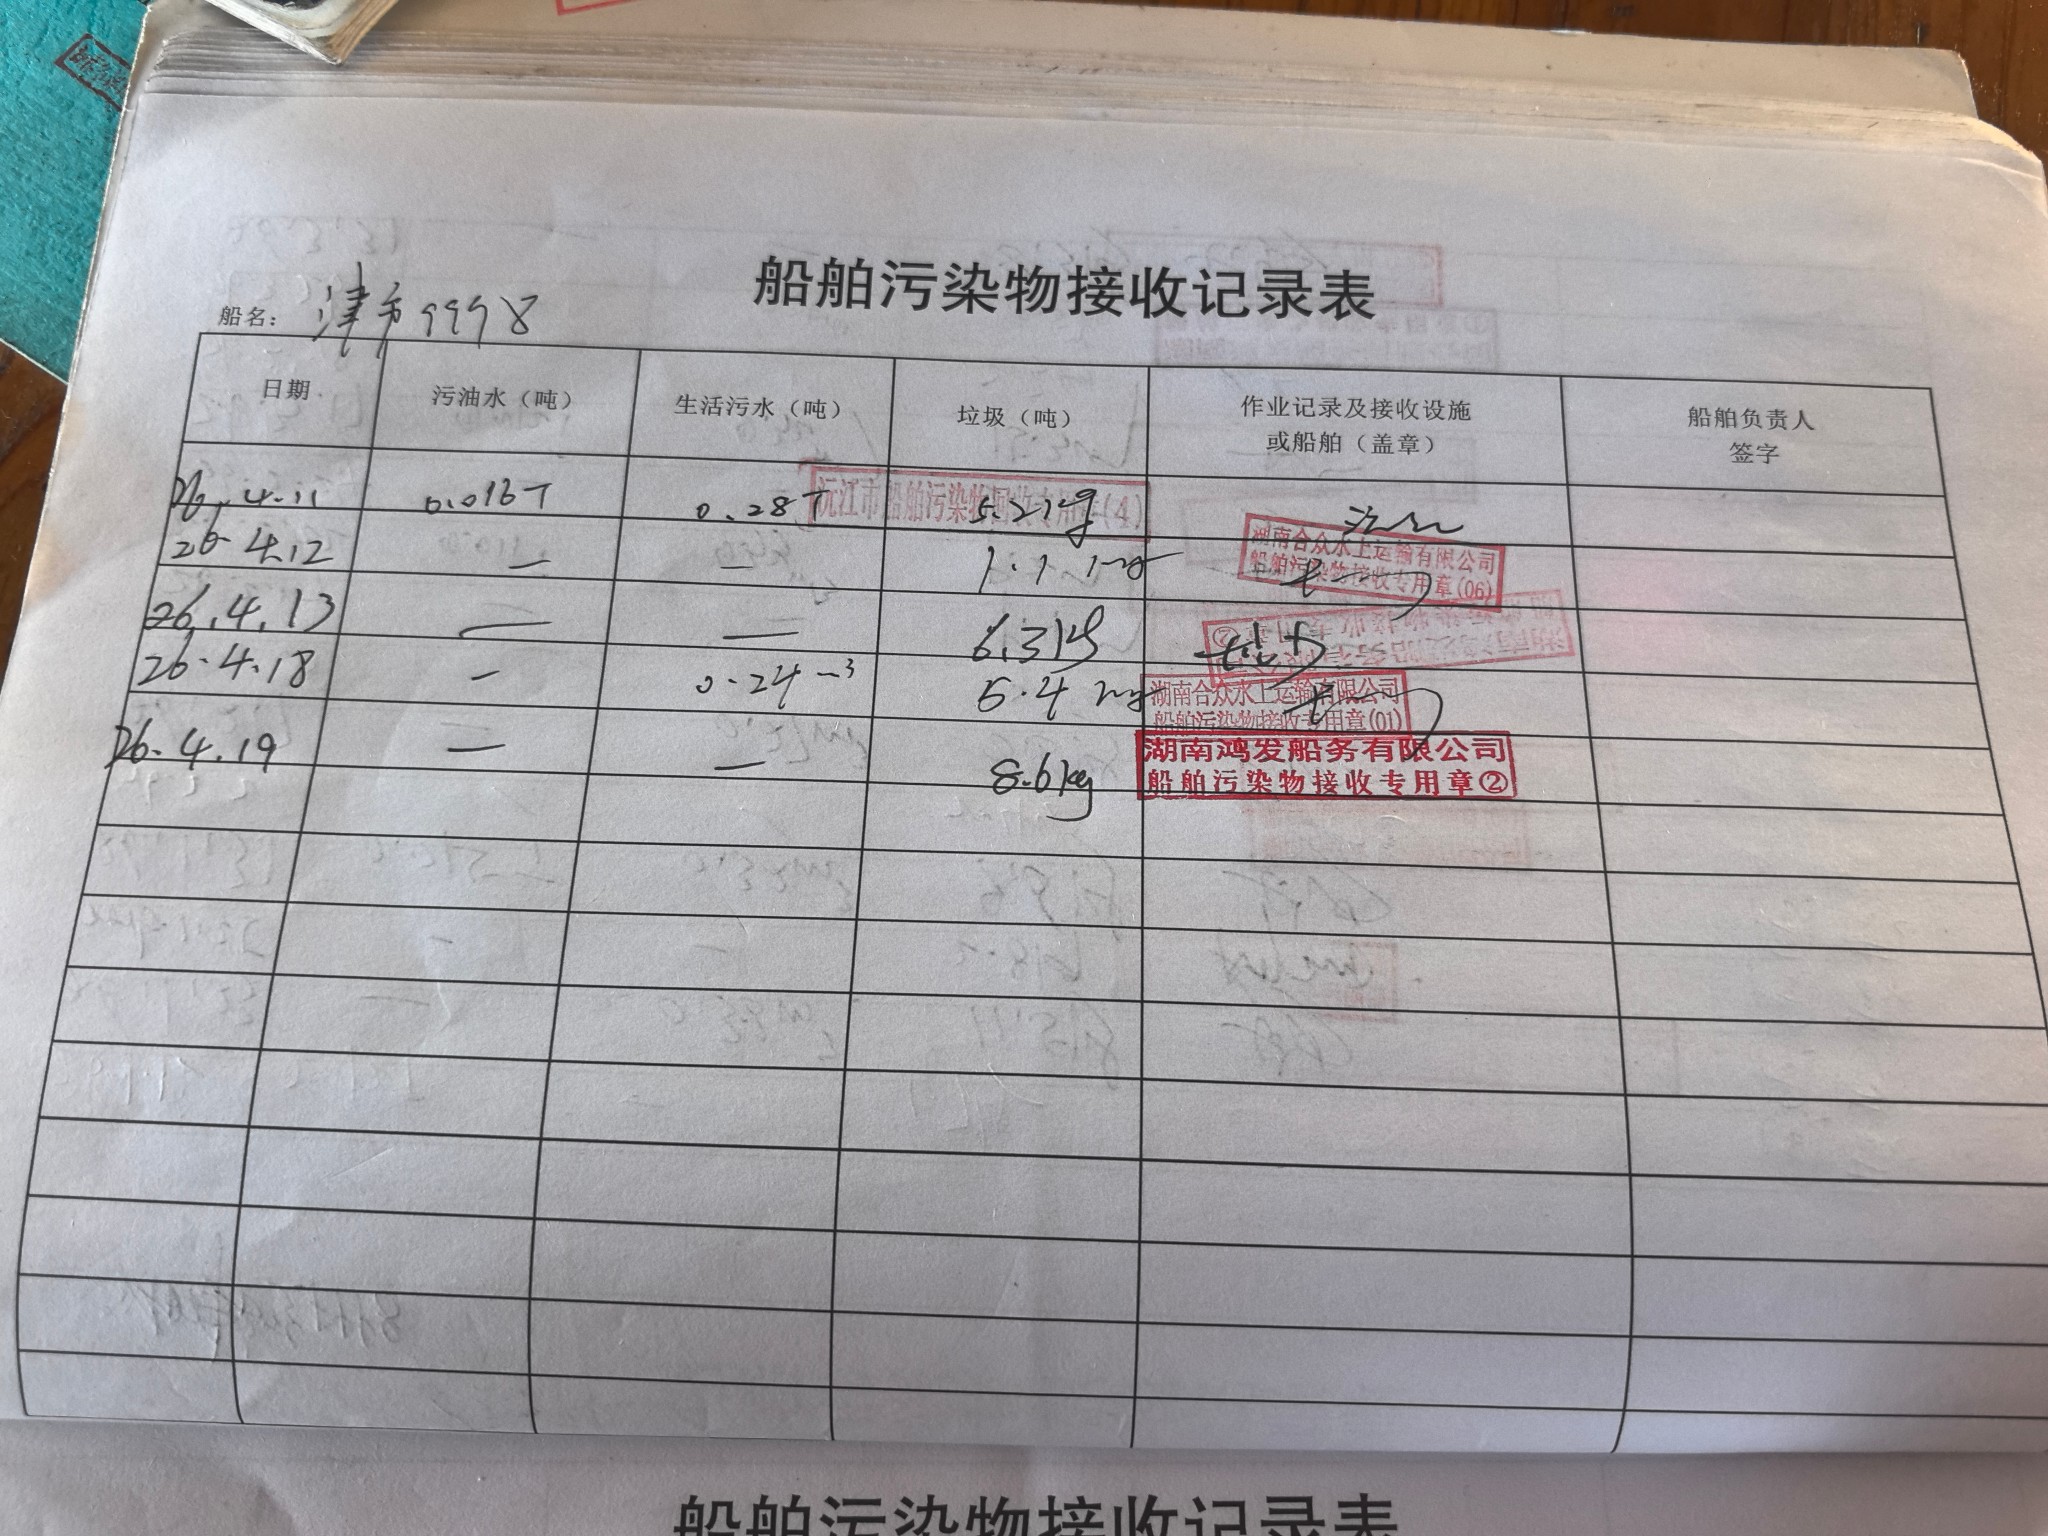 船舶污染物接收记录表
船名: 津市9998
日期 污油水（吨） 生活污水（吨） 垃圾（吨） 作业记录及接收设施或船舶（盖章） 船舶负责人签字
26.4.11 0.016T 0.28T 5.2kg
沅江市船舶污染物回收专用章(4)
26.4.12 — — 1.1kg
湖南合众水上运输有限公司
船舶污染物接收专用章(06)
26.4.13 — — 6.3kg
26.4.18 — 0.24m³ 5.4kg
湖南合众水上运输有限公司
船舶污染物接收专用章(01)
26.4.19 — — 8.6kg
湖南鸿发船务有限公司
船舶污染物接收专用章②
船舶污染物接收记录表